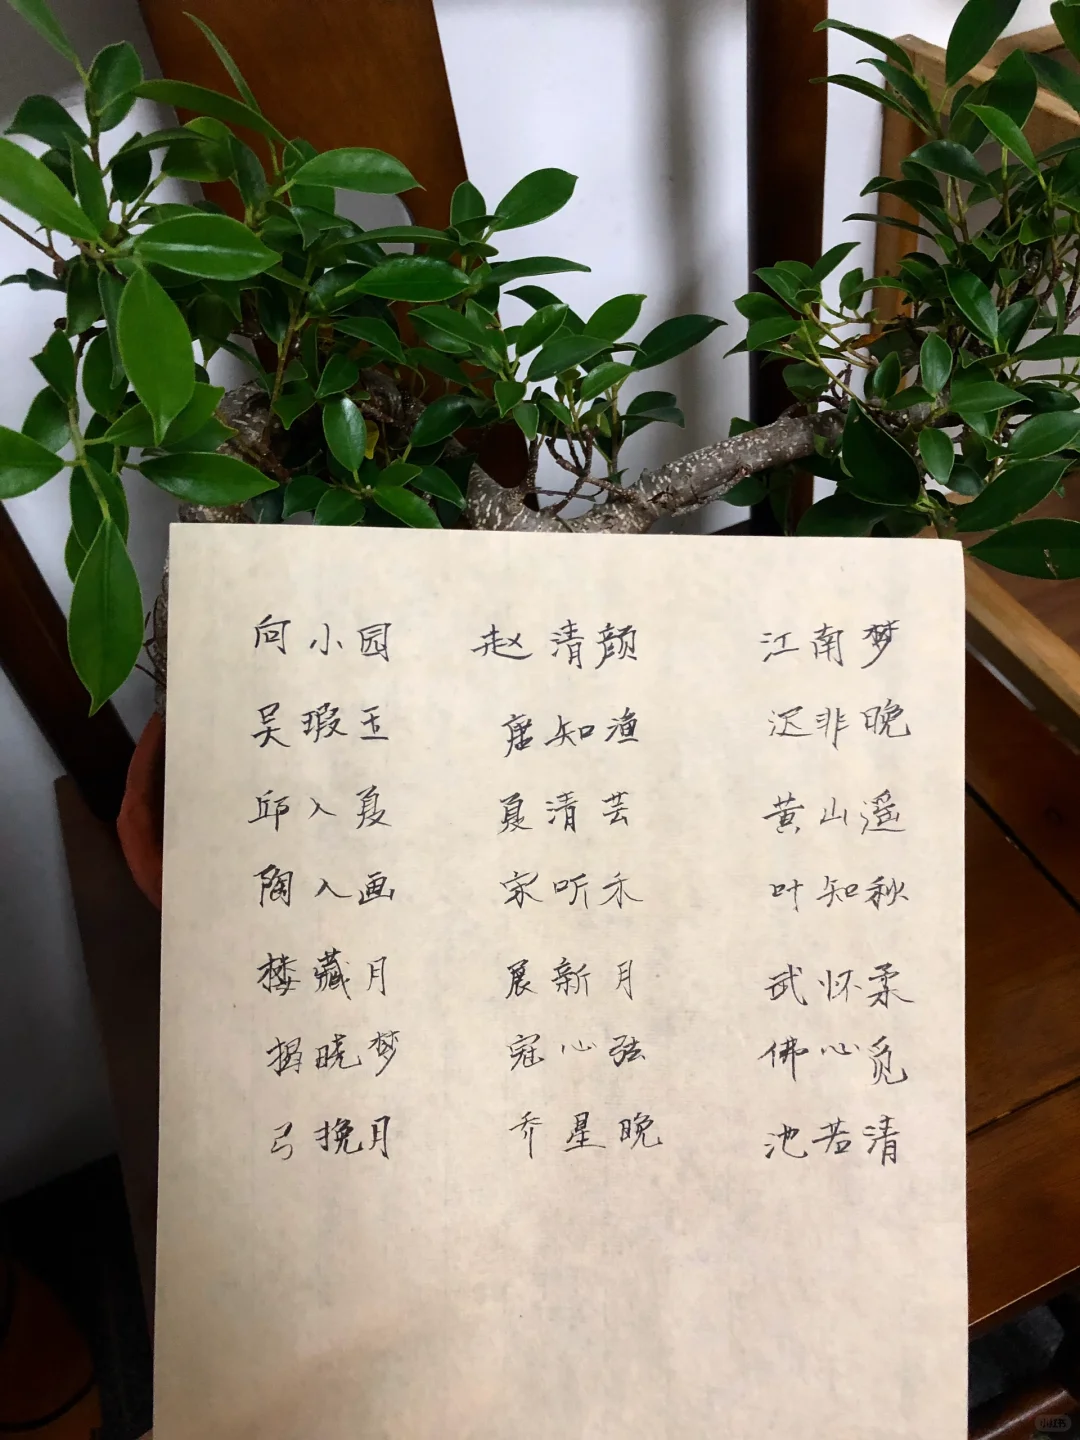 向小园 赵清颜 江南梦
吴瑕玉 唐知渔 迟非晚
邱入夏 夏清芸 黄山遥
陶入画 宋听禾 叶知秋
楼藏月 展新月 武怀柔
揭晓梦 寇心弦 佛心觅
弓挽月 乔星晚 池若清
小红书